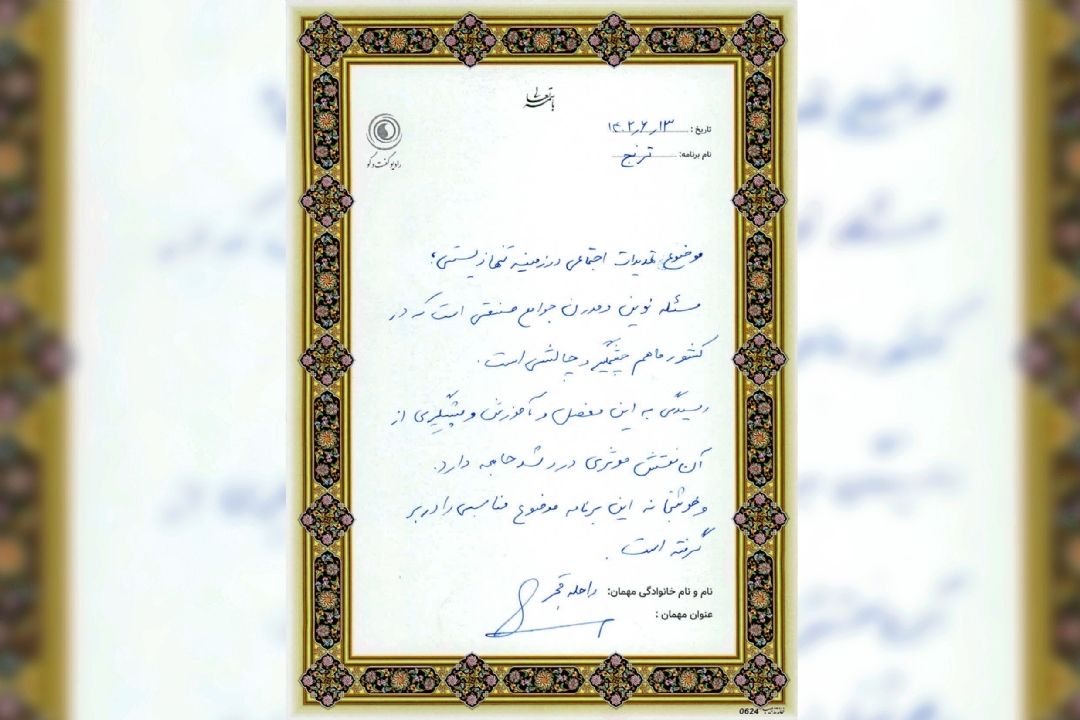 باسمه تعالی
تاریخ: ۱۴۰۲٫۶٫۱۳
نام برنامه: ترنج
رادیو گفت و گو
موضوع تهدیدات اجتماعی در زمینه تنها زیستی؛
مسئله نوین و مدرن جوامع صنعتی است که در
کشور ما هم چشمگیر و چالشی است.
رسیدگی به این معضل و آموزش و پیشگیری از
آن نقش موثری در رشد جامعه دارد.
و خوشبختانه این برنامه موضوع مناسبی را در بر
گرفته است.
نام و نام خانوادگی مهمان: راحله
عنوان مهمان:
0624